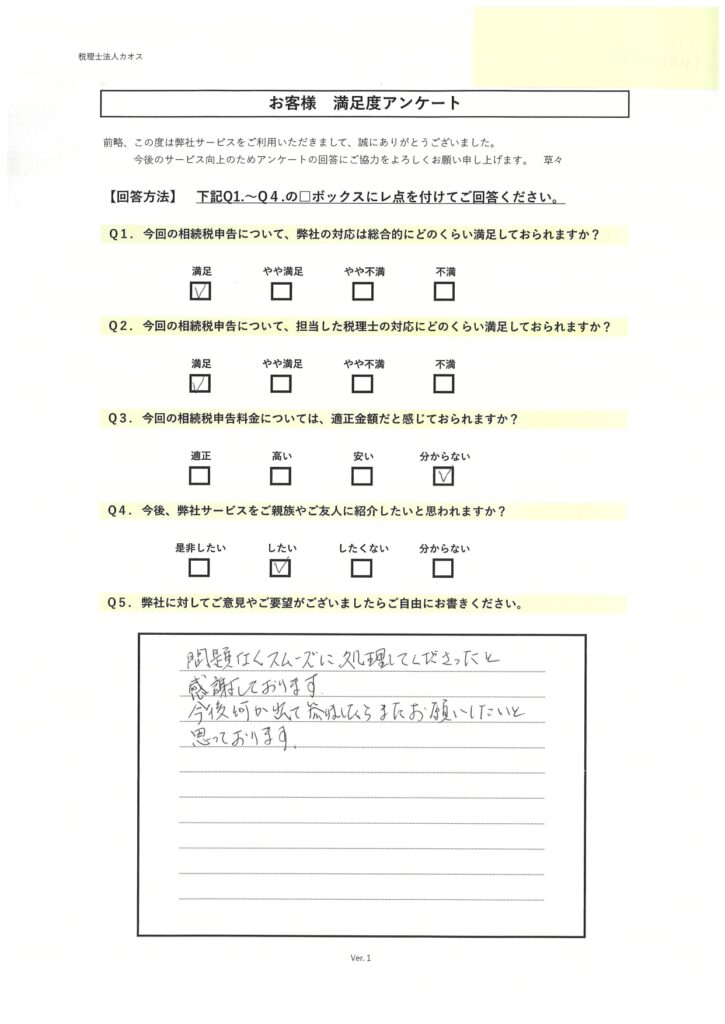 税理士法人カオス
お客様　満足度アンケート
前略、この度は弊社サービスをご利用いただきまして、誠にありがとうございました。
今後のサービス向上のためアンケートの回答にご協力をよろしくお願い申し上げます。　草々
【回答方法】　下記Q1.～Q４.の□ボックスにレ点を付けてご回答ください。
Q１．今回の相続税申告について、弊社の対応は総合的にどのくらい満足しておられますか？
満足　やや満足　やや不満　不満
Q２．今回の相続税申告について、担当した税理士の対応にどのくらい満足しておられますか？
満足　やや満足　やや不満　不満
Q３．今回の相続税申告料金については、適正金額だと感じておられますか？
適正　高い　安い　分からない
Q４．今後、弊社サービスをご親族やご友人に紹介したいと思われますか？
是非したい　したい　したくない　分からない
Q５．弊社に対してご意見やご要望がございましたらご自由にお書きください。
問題なくスムーズに処理してくださったと
感謝しております.
今後何か出て参りましたらまたお願いしたいと
思っております.
Ver. 1